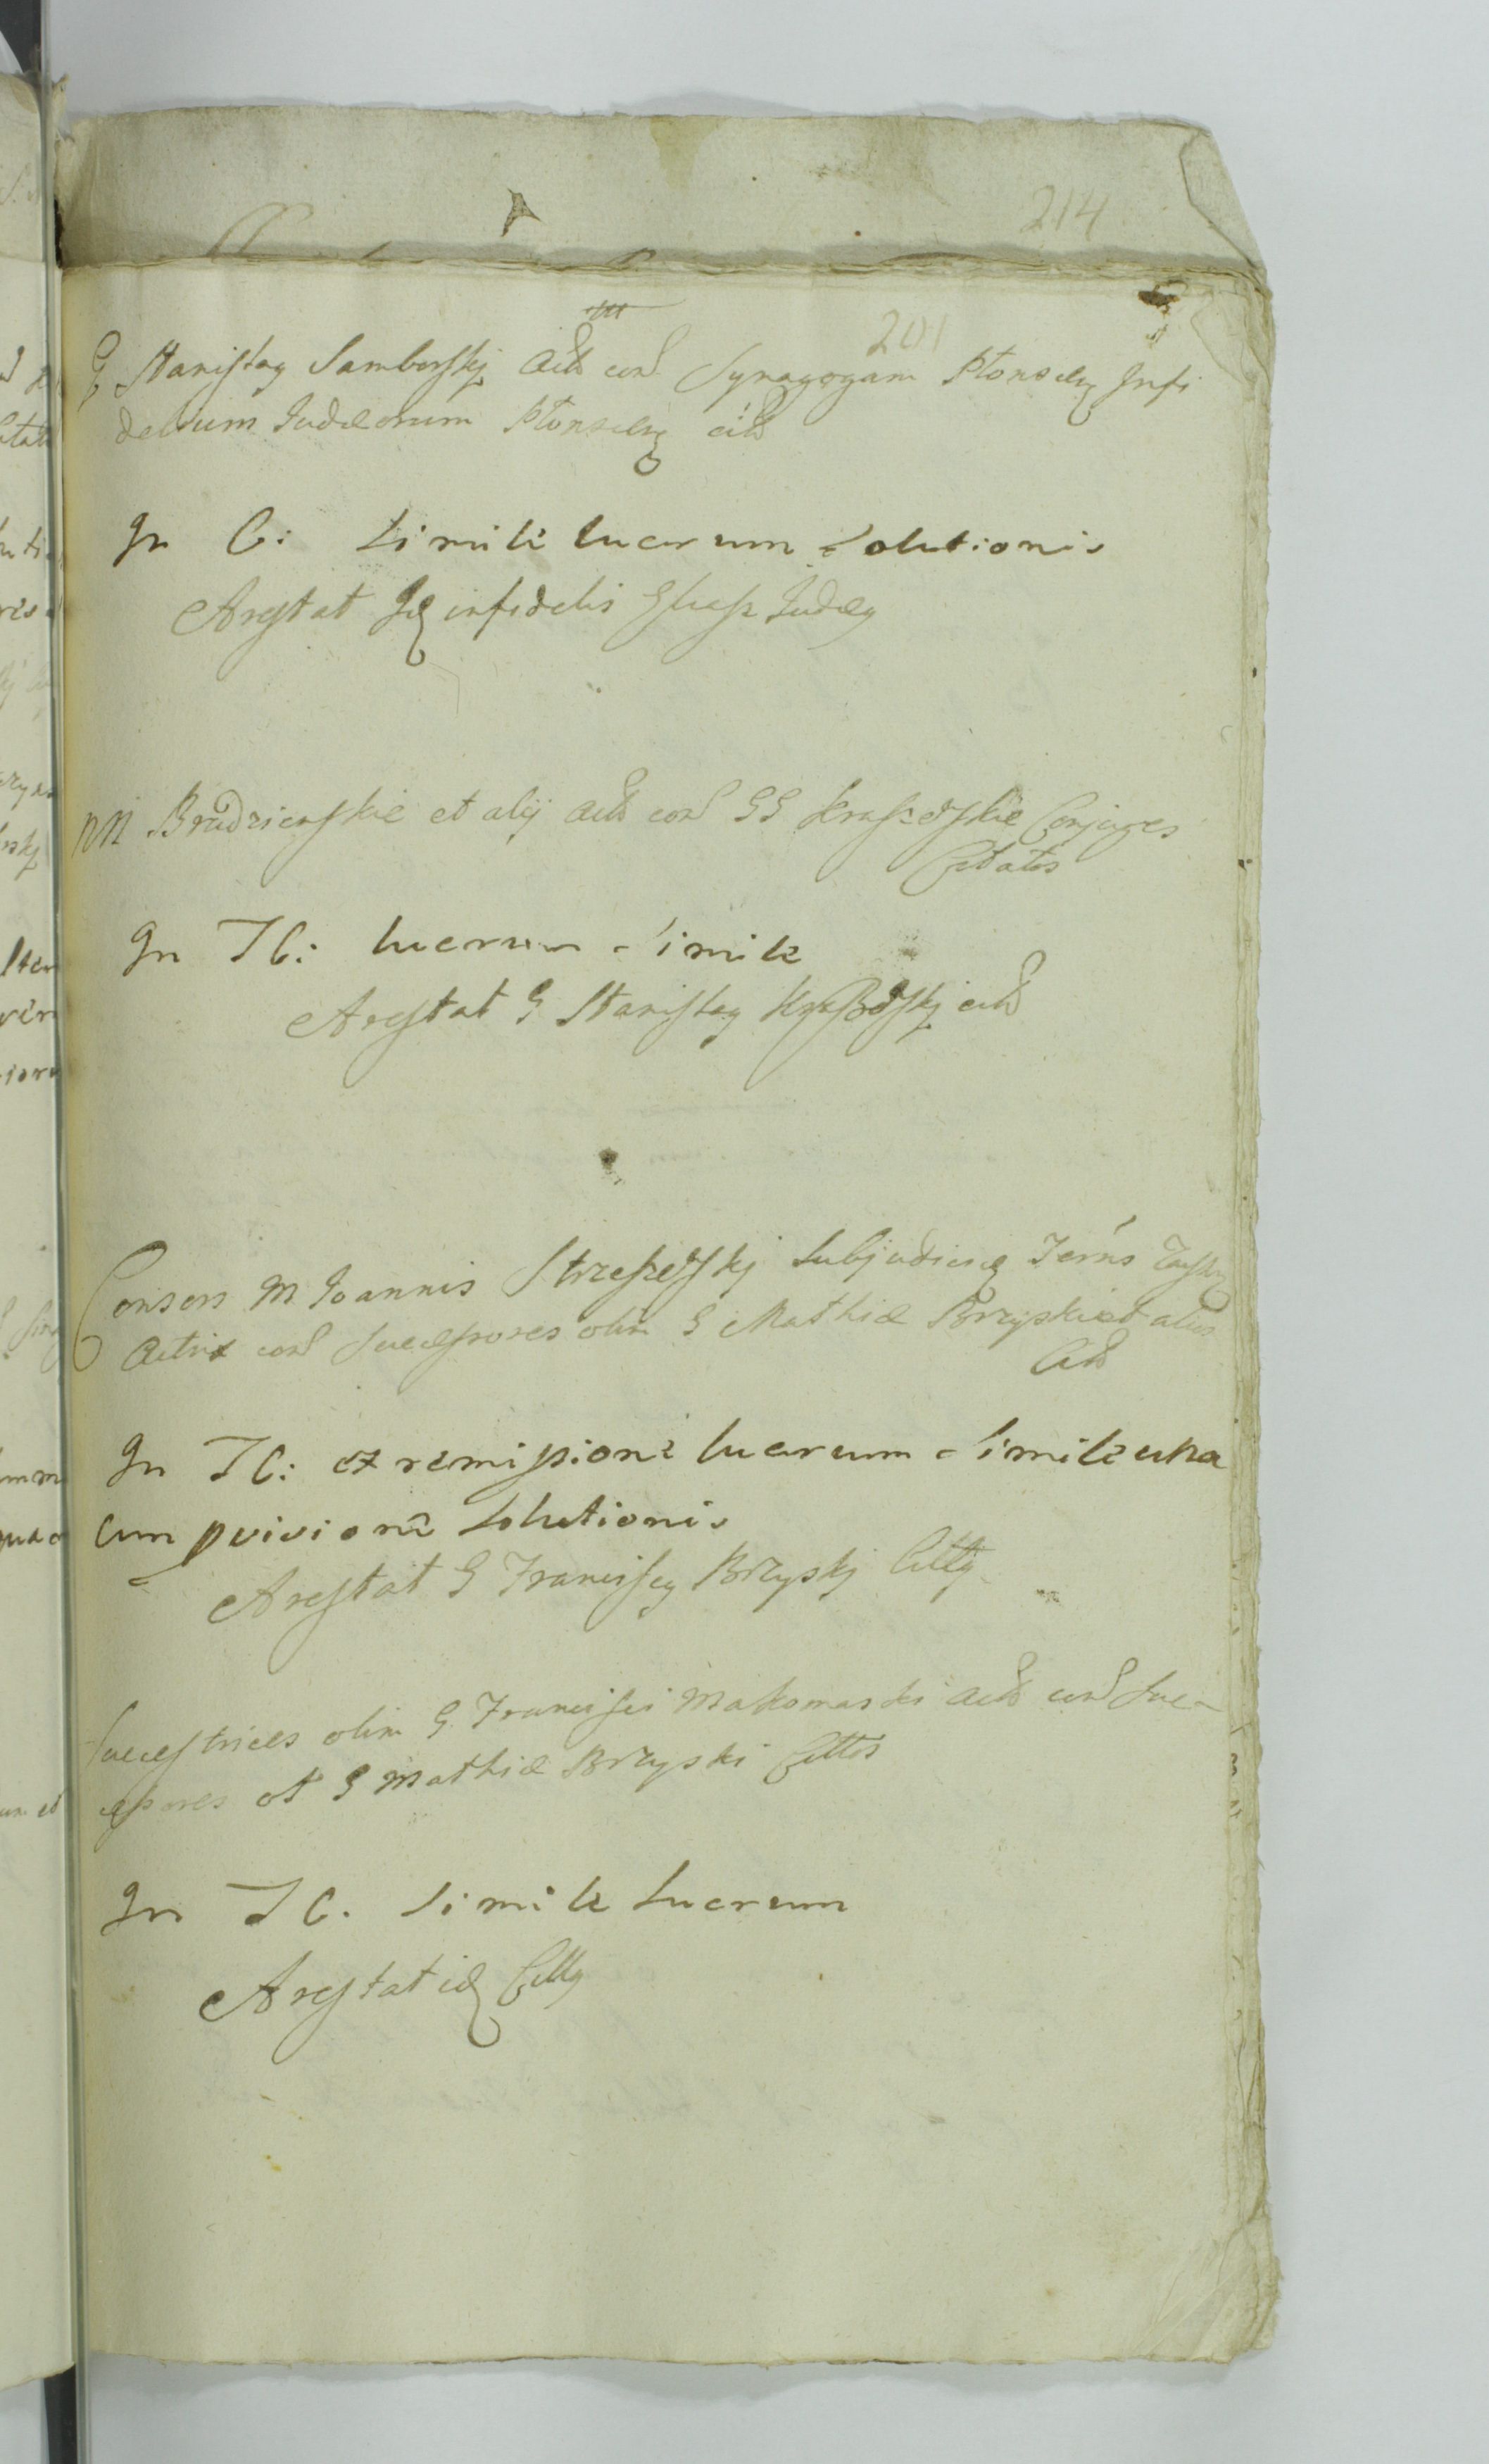 214
201
G Stanislaӡ Samborskj Actt con Synagogam Płonscen Infi
delium Judæorum Płonscen citt
In C: Simile lucrum Solutionis
Arestat Id infidelis Judæӡ
MM Brudzienskie et alij Actt con GG Conjuges
Citatos
In TC: lucrum Simile
Arestat G Stanislaӡ citt
Consors M Joannis Strzeszewskj Subjudicis Terris
Actrix con Successores olim G Mathiæ Brzyski et alios
Citt
In TC: ex remissione lucrum Simile una
cum Solutionis
Arestat G Franciscӡ Brzyskj Cittӡ
Succestrices olim G Francisci Makomaski Actt con Suc-
cessores ol G Mathiæ Brzyski Cittos
In TC. Simile Lucrum
Arestat id Cittӡ